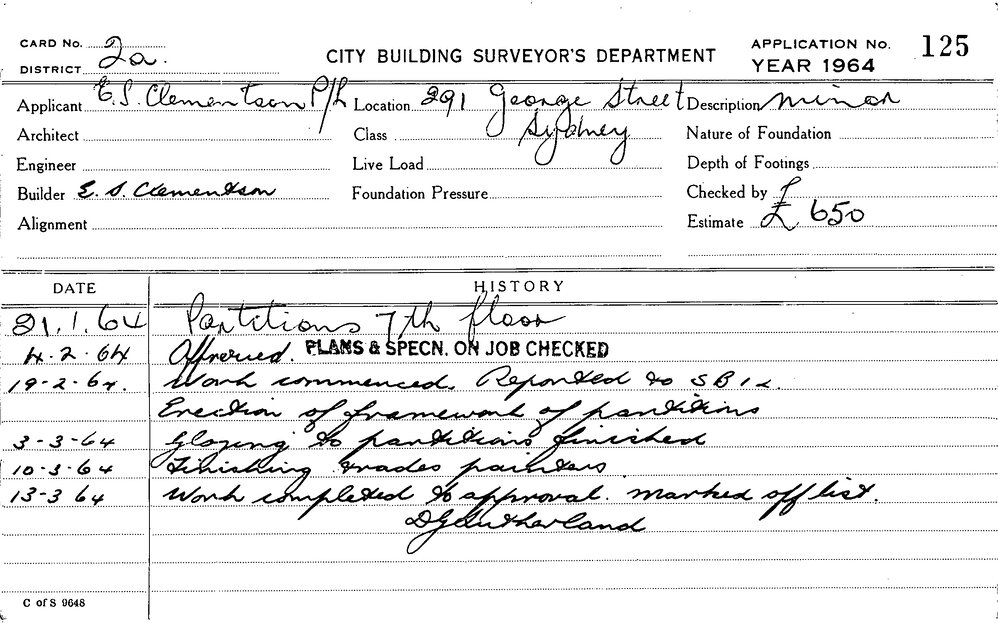 CARD No. 2a. CITY BUILDING SURVEYOR'S DEPARTMENT APPLICATION No. 125
DISTRICT YEAR 1964
Applicant E.S. Clementson P/L Location 291 George Street Description minor
Architect Class Sydney Nature of Foundation
Engineer Live Load Depth of Footings
Builder E. S. Clementson Foundation Pressure Checked by
Alignment Estimate £ 650
DATE HISTORY
21.1.64 Partitions 7th floor
4.2.64 Approved. PLANS & SPECN. ON JOB CHECKED
19-2-64. Work commenced. Reported to SB
Erection of framework of partitions
3-3-64 Glazing to partitions finished
10-3-64 Finishing trades painters
13-3 64 Work completed to approval. marked off list.
DGSutherland
C of S 9648